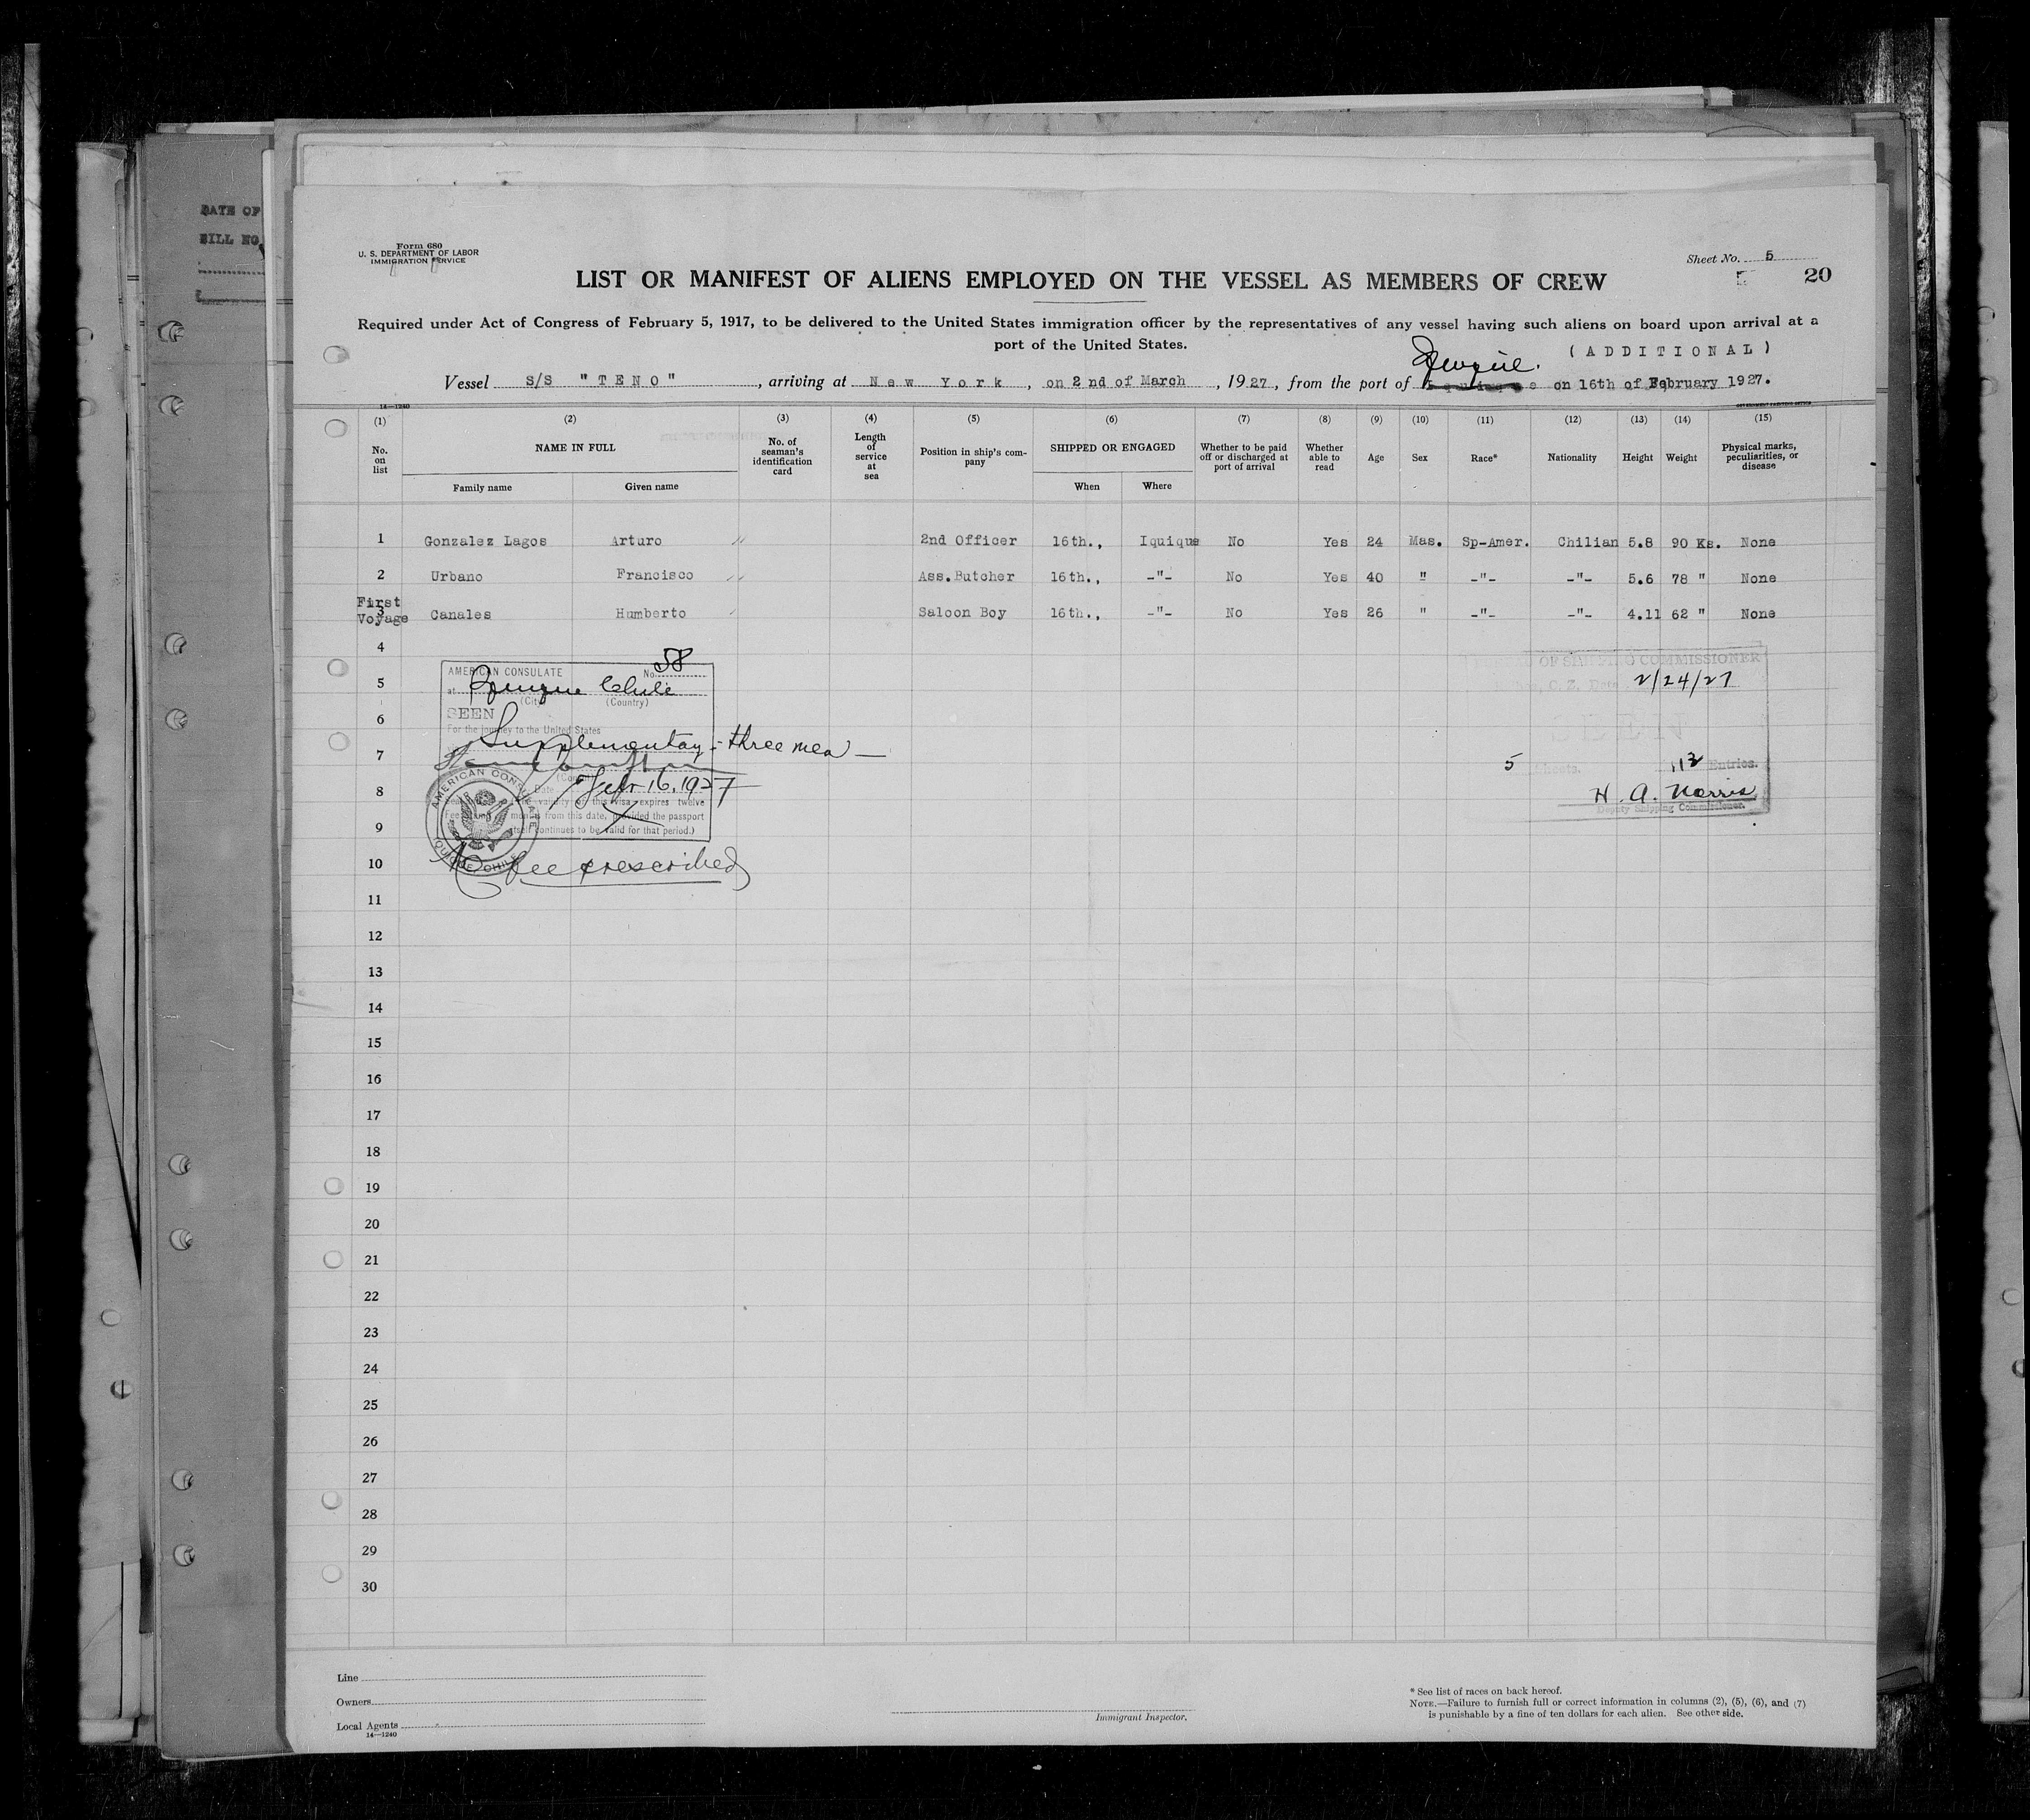 DATE OF
BILL NO
Form 680
U. S. DEPARTMENT OF LABOR
IMMIGRATION SERVICE
Sheet No. 5
5 20
LIST OR MANIFEST OF ALIENS EMPLOYED ON THE VESSEL AS MEMBERS OF CREW
Required under Act of Congress of February 5, 1917, to be delivered to the United States immigration officer by the representatives of any vessel having such aliens on board upon arrival at a
port of the United States.
(ADDITIONAL)
Iquique.
Vessel S/S "TENO", arriving at New York, on 2nd of March, 1927, from the port of Iquique on 16th of February 1927.
14—1240
(1) (2) (3) (4) (5) (6) (7) (8) (9) (10) (11) (12) (13) (14) (15)
No. on list NAME IN FULL No. of seaman's identification card Length of service at sea Position in ship's company SHIPPED OR ENGAGED Whether to be paid off or discharged at port of arrival Whether able to read Age Sex Race* Nationality Height Weight Physical marks, peculiarities, or disease
Family name Given name When Where
1 Gonzalez Lagos Arturo 2nd Officer 16th., Iquique No Yes 24 Mas. Sp-Amer. Chilian 5.8 90 Ks. None
2 Urbano Francisco Ass.Butcher 16th., -"- No Yes 40 " -"- -"- 5.6 78 " None
First Voyage
3 Canales Humberto Saloon Boy 16th., -"- No Yes 26 " -"- -"- 4.11 62 " None
4
5
6
7
8
9
10
11
12
13
14
15
16
17
18
19
20
21
22
23
24
25
26
27
28
29
30
AMERICAN CONSULATE No. 58
at Iquique Chile
(City) (Country)
SEEN
For the journey to the United States
Supplementary - three men —
(Consul)
Date Feb 16, 1927
(The validity of this visa expires twelve
months from this date, provided the passport
itself continues to be valid for that period.)
AMERICAN CONSULATE
IQUIQUE CHILE
No fee prescribed
BUREAU OF SHIPPING COMMISSIONER
C. Z. Date 2/24/27
SEEN
5 Sheets. 112 Entries.
H. A. Norris
Deputy Shipping Commissioner.
Line
Owners
Local Agents
14—1240
Immigrant Inspector.
* See list of races on back hereof.
NOTE.—Failure to furnish full or correct information in columns (2), (5), (6), and (7)
is punishable by a fine of ten dollars for each alien. See other side.